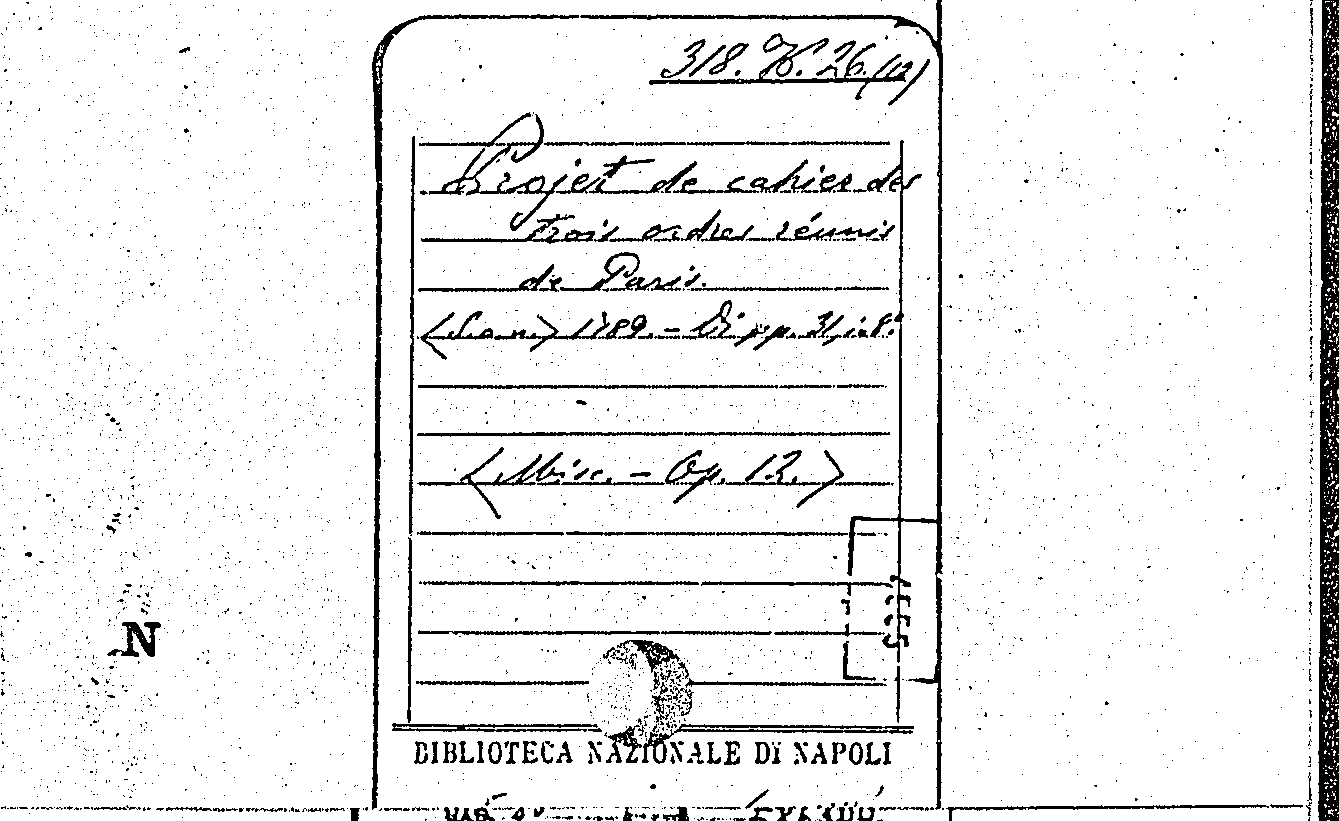 318. H. 26.(12)
Projet de cahier des
trois ordres réunis
de Paris.
<S.a.n.> 1789. - Di pp. 31, in 8.°
<Misc. - Op. 12.>
N
BIBLIOTECA NAZIONALE DI NAPOLI